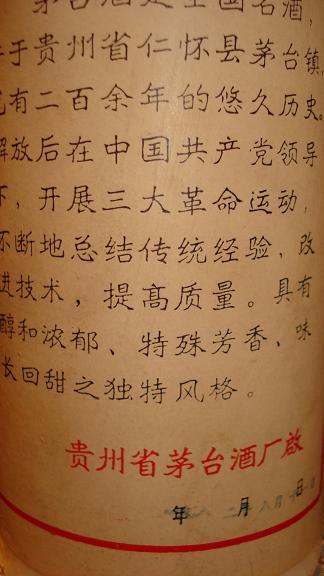 茅台酒是全国名酒，
于贵州省仁怀县茅台镇，
有二百余年的悠久历史。
解放后在中国共产党领导
下，开展三大革命运动，
不断地总结传统经验、改
进技术，提高质量。具有
醇和浓郁、特殊芳香、味
长回甜之独特风格。
贵州省茅台酒厂啟
年 月 日